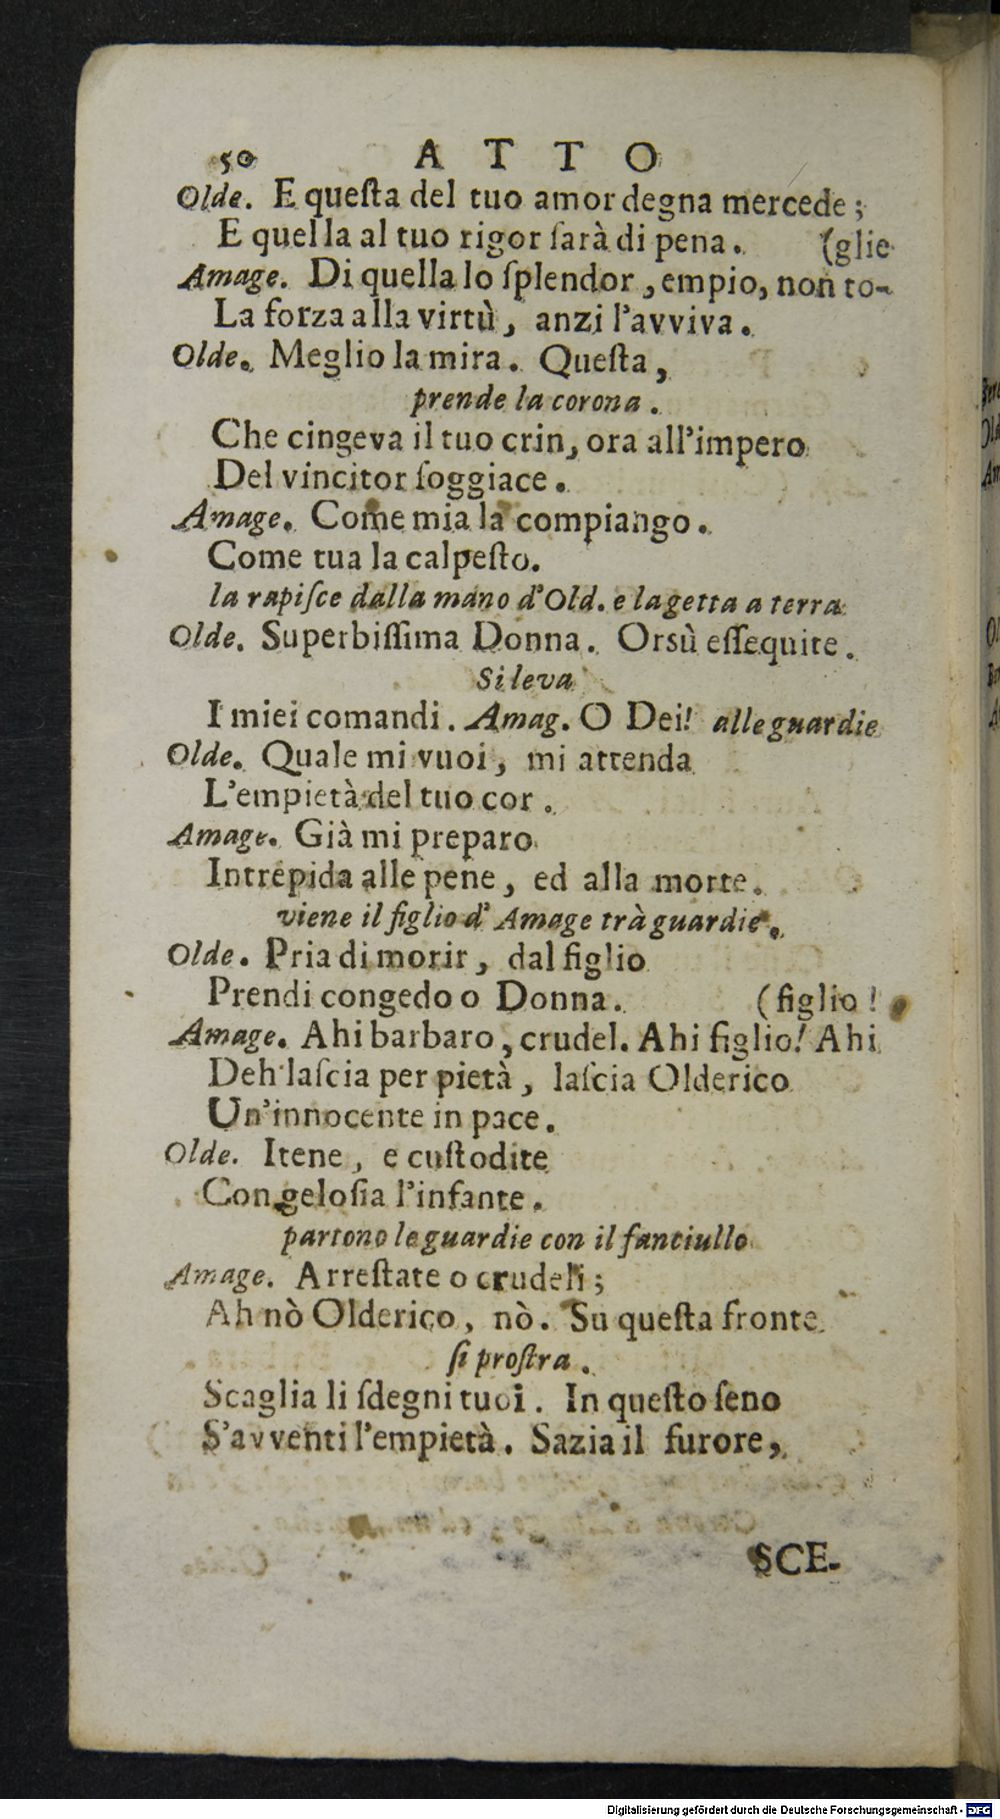 50 ATTO
Olde. E queſta del tuo amor degna mercede;
E quella al tuo rigor ſarà di pena. (glie
Amage. Di quella lo ſplendor, empio, non to-
La forza alla virtù, anzi l'avviva.
Olde. Meglio la mira. Queſta,
prende la corona.
Che cingeva il tuo crin, ora all'impero
Del vincitor ſoggiace.
Amage. Come mia la compiango.
Come tua la calpeſto.
la rapiſce dalla mano d'Old. e la getta a terra
Olde. Superbiſſima Donna. Orsù eſſequite.
Si leva
I miei comandi. Amag. O Dei! alle guardie
Olde. Quale mi vuoi, mi attenda
L'empietà del tuo cor.
Amage. Già mi preparo
Intrepida alle pene, ed alla morte.
viene il figlio d'Amage trà guardie.
Olde. Pria di morir, dal figlio
Prendi congedo o Donna. (figlio!
Amage. Ahi barbaro, crudel. Ahi figlio! Ahi
Deh laſcia per pietà, laſcia Olderico
Un'innocente in pace.
Olde. Itene, e cuſtodite
Con geloſia l'infante.
partono le guardie con il fanciullo
Amage. Arreſtate o crudeli;
Ah nò Olderico, nò. Su queſta fronte
ſi proſtra.
Scaglia li ſdegni tuoi. In queſto ſeno
S'avventi l'empietà. Sazia il furore,
SCE-
Digitalisierung gefördert durch die Deutsche Forschungsgemeinschaft - DFG